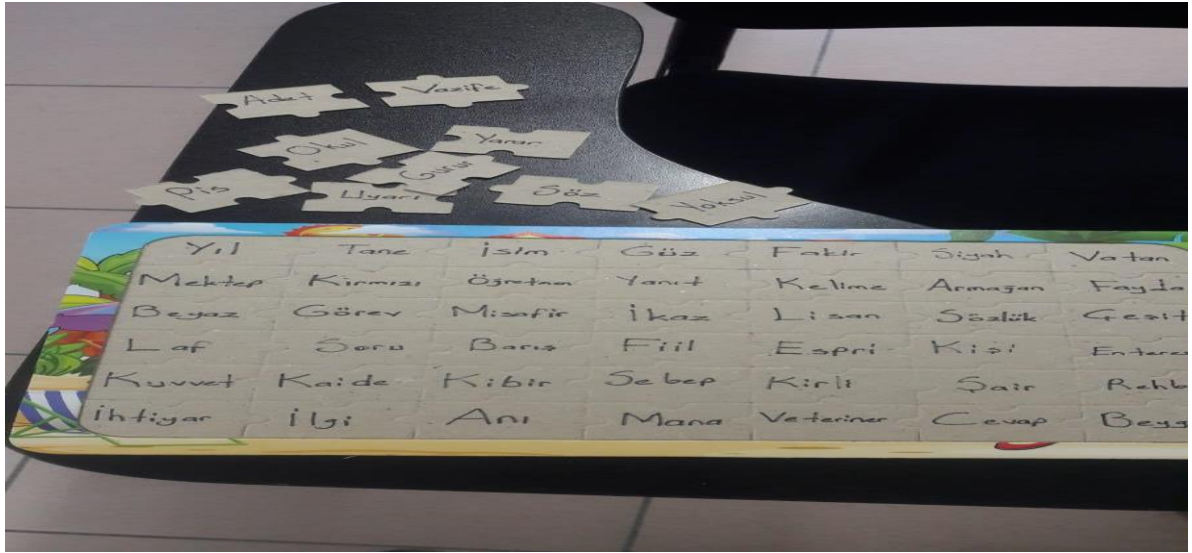 Adet Vazife
Okul Yarar
Gurur
Pis Uyarı Söz Yoksul
Yıl Tane İsim Güz Fakir Siyah Vatan
Mektep Kırmızı Öğretmen Yanıt Kelime Armağan Fayda
Beyaz Görev Misafir İkaz Lisan Sözlük Çeşit
Laf Soru Barış Fiil Espri Kişi Enteres
Kuvvet Kaide Kibir Sebep Kirli Şair Rehb
İhtiyar İlgi Anı Mana Veteriner Cevap Beyg